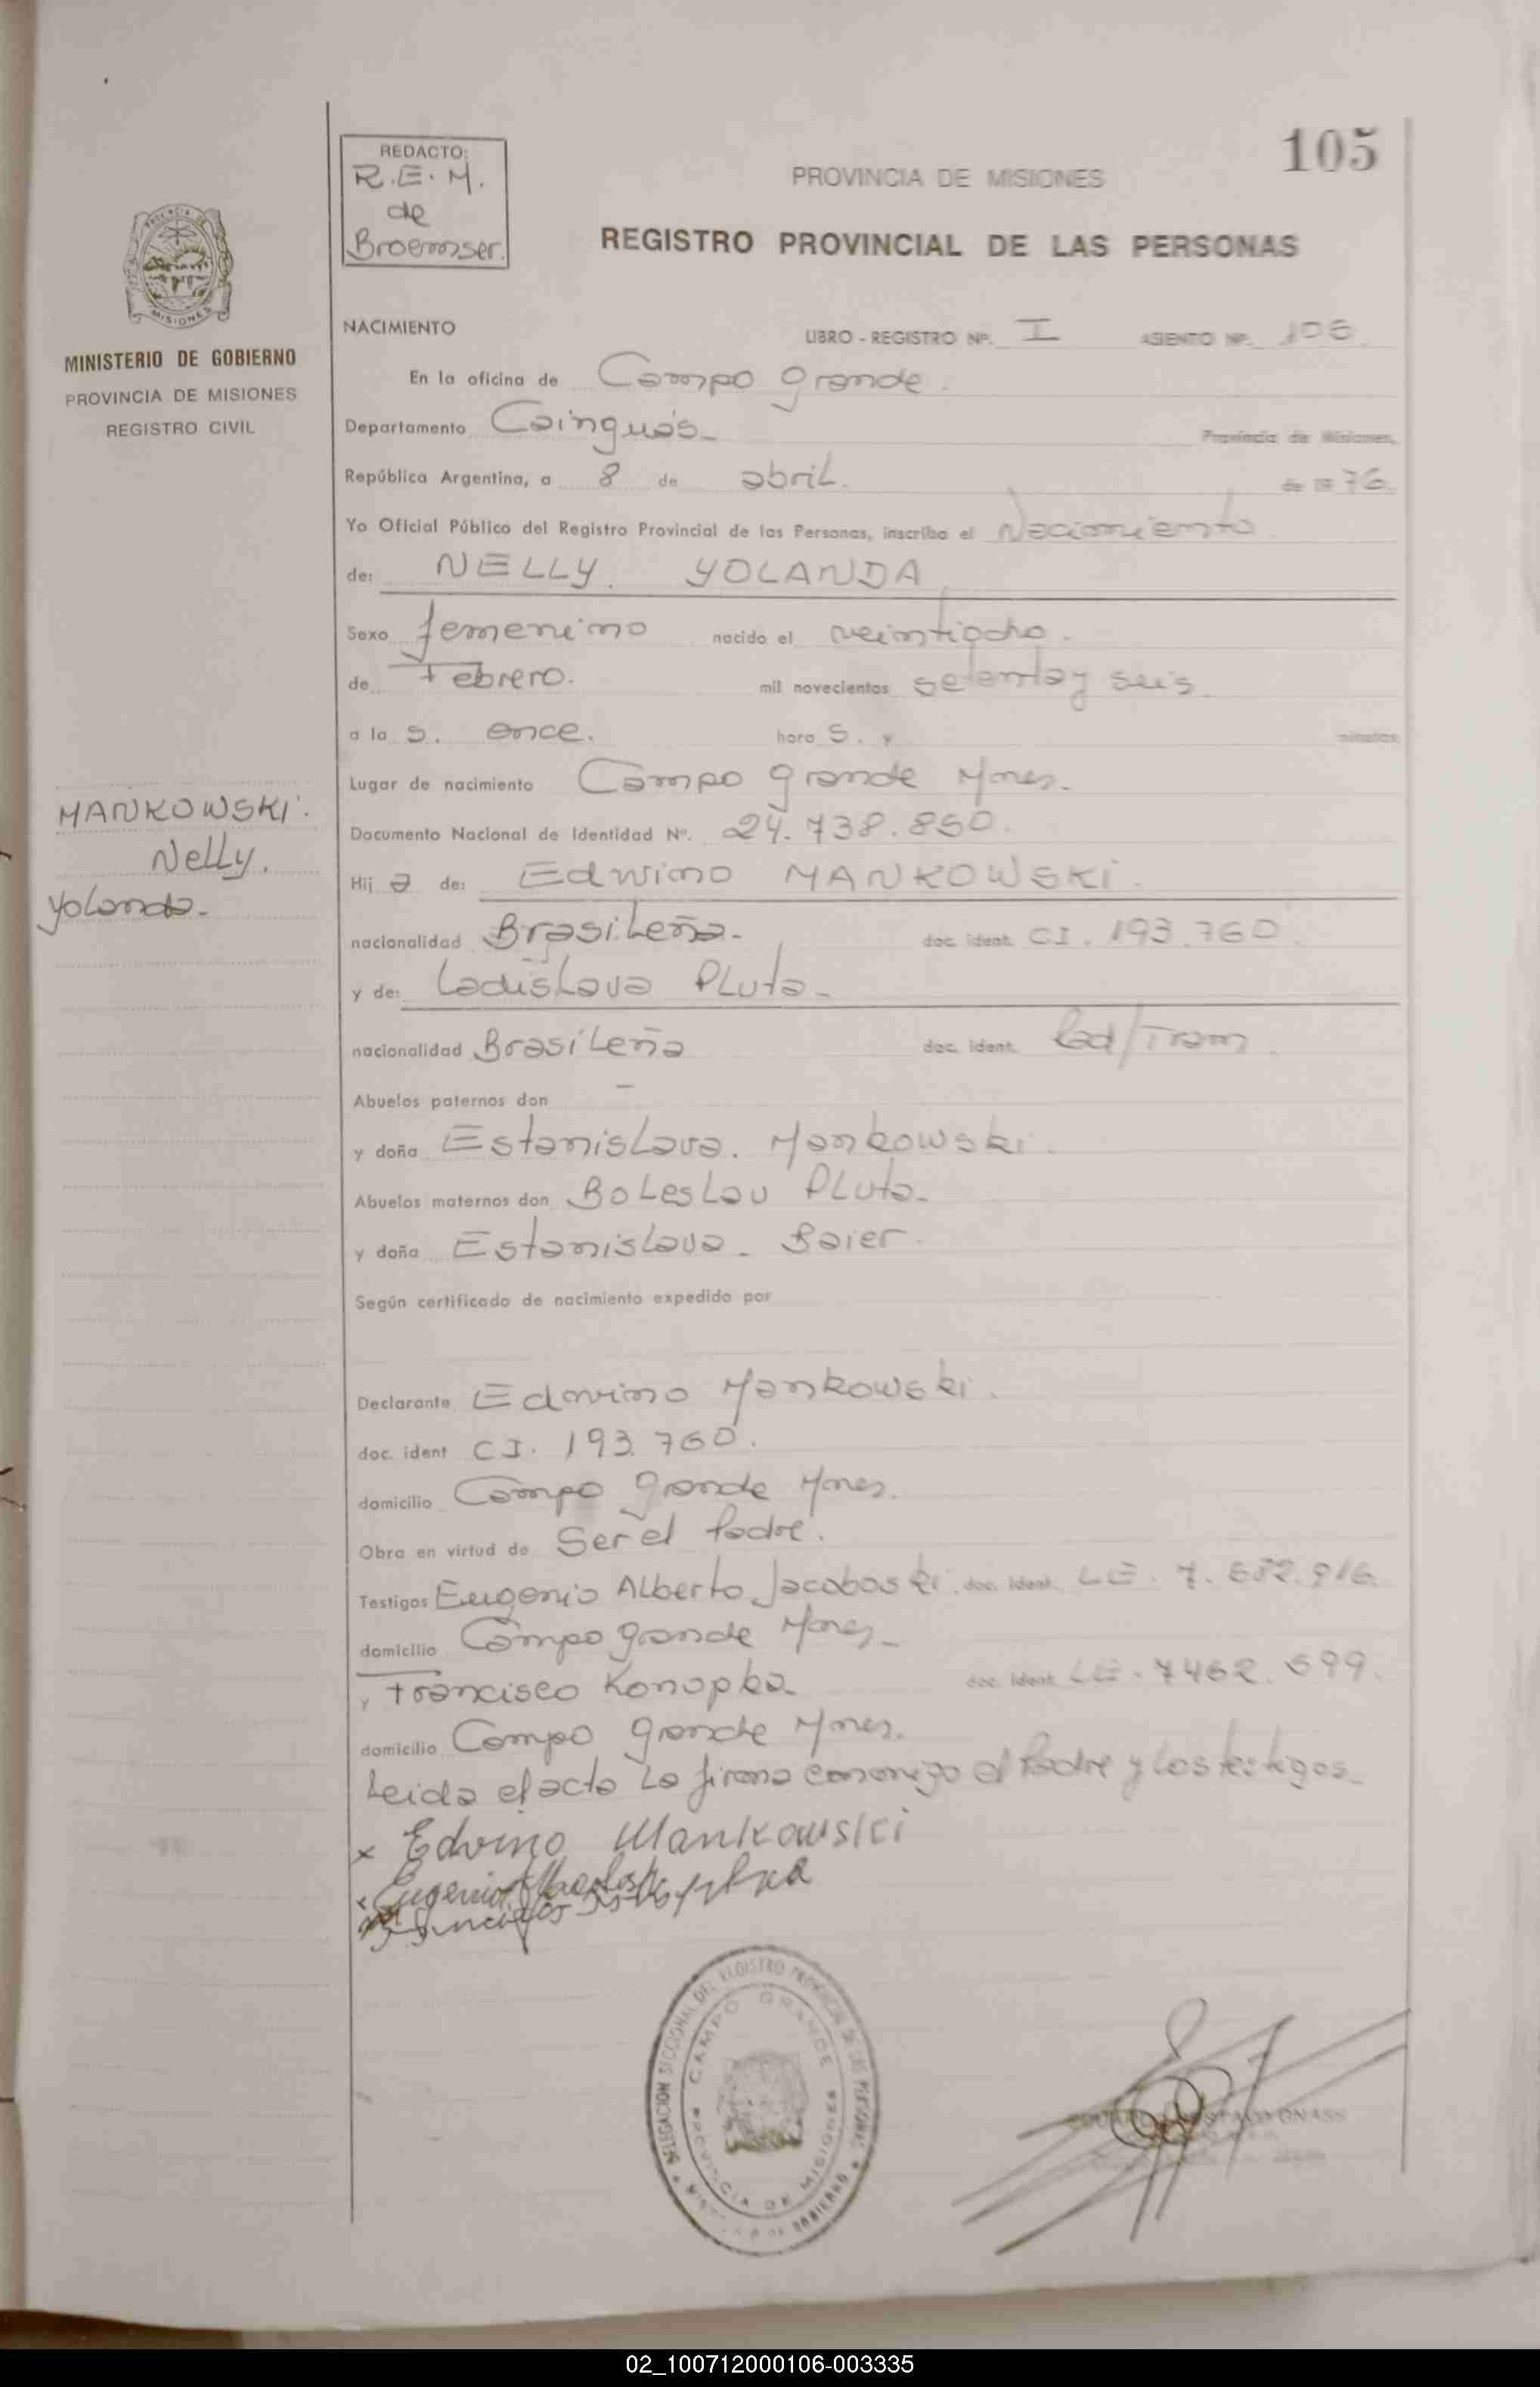 105
REDACTO:
R.E.M.
de
Broemser.
PROVINCIA DE MISIONES
REGISTRO PROVINCIAL DE LAS PERSONAS
PROVINCIA DE
MISIONES
MINISTERIO DE GOBIERNO
PROVINCIA DE MISIONES
REGISTRO CIVIL
NACIMIENTO LIBRO - REGISTRO Nº. I ASIENTO Nº.
En la oficina de Campo Grande.
Departamento Cainguás- Provincia de Misiones,
República Argentina, a 8 de abril. de 19 76.
Yo Oficial Público del Registro Provincial de las Personas, inscribo el Nacimiento
de: NELLY. YOLANDA
Sexo femenino nacido el veintiocho.
de Febrero. mil novecientos setenta y seis
a la s. once. hora s. y minutos
Lugar de nacimiento Campo Grande Mnes.
Documento Nacional de Identidad Nº. 24.738.850.
MANKOWSKI.
Nelly.
Yolanda-
Hij a de: Edwino MANKOWSKI.
nacionalidad Brasileña- doc. ident. CI. 193.760
y de: Ladislava Pluta-
nacionalidad Brasileña doc. ident. Rad/Tram.
Abuelos paternos don —
y doña Estanislava. Mankowski.
Abuelos maternos don Boleslau Pluta-
y doña Estanislava. Baier.
Según certificado de nacimiento expedido por
Declarante Edwino Mankowski.
doc. ident CI. 193.760.
domicilio Campo Grande Mnes.
Obra en virtud de Ser el Padre.
Testigos Eugenio Alberto Jacoboski. doc. ident. LE. 7.
domicilio Campo Grande Mnes-
y Francisco Konopka- doc. ident. LE. 7462.
domicilio Campo Grande Mnes.
Leida el acta La firma conmigo el Padre y los testigos-
x Edvino Mankowski
Eugenio
DELEGACION SECCIONAL DEL REGISTRO PROVINCIAL DE LAS PERSONAS
CAMPO GRANDE
PROVINCIA DE MISIONES
02_100712000106-003335